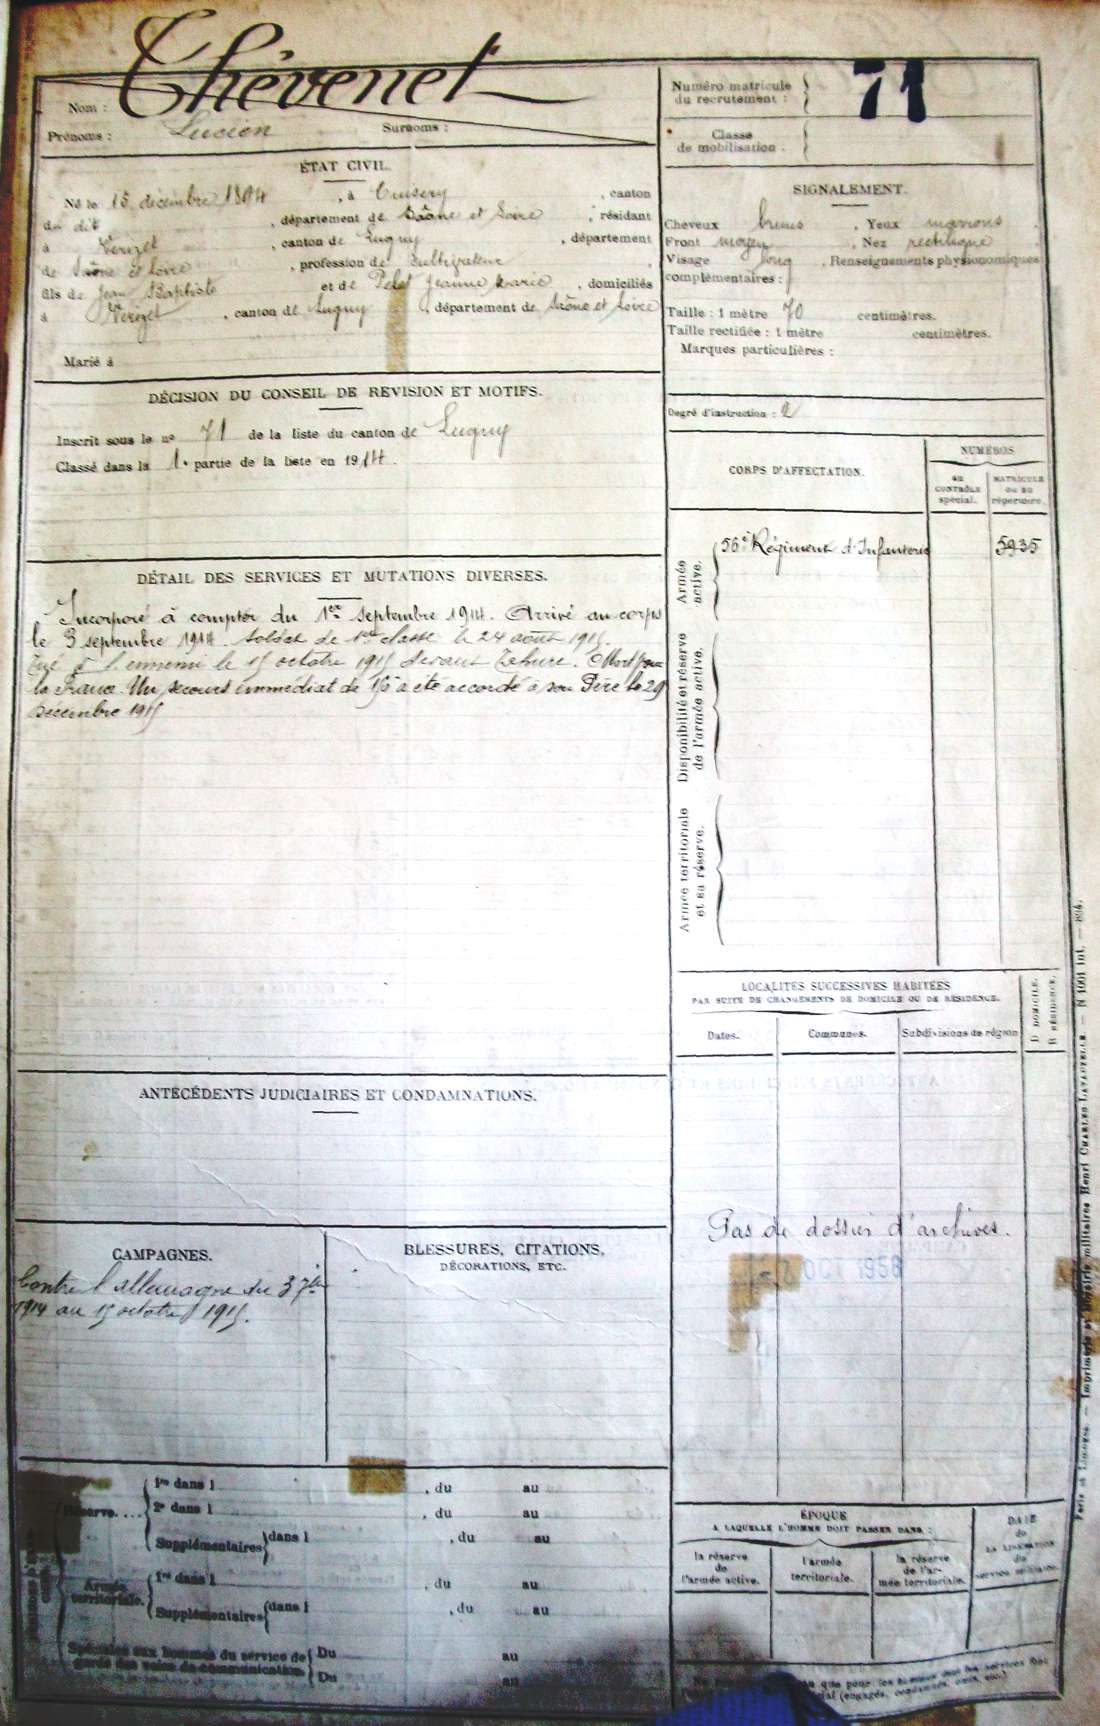 Nom : Thévenet
Prénoms : Lucien Surnoms :
ÉTAT CIVIL.
Né le 15 décembre 1894, à Cruzery, canton
du dit, département de Saône et Loire, résidant
à Verizet, canton de Lugny, département
de Saône et Loire, profession de Cultivateur
fils de Jean Baptiste et de Pelet Jeanne Marie, domiciliés
à Verizet, canton de Lugny, département de Saône et Loire
Marié à
DÉCISION DU CONSEIL DE REVISION ET MOTIFS.
Inscrit sous le nº 71 de la liste du canton de Lugny
Classé dans la 1e partie de la liste en 1914.
DÉTAIL DES SERVICES ET MUTATIONS DIVERSES.
Incorporé à compter du 1er septembre 1914. Arrivé au corps
le 3 septembre 1914. Soldat de 1re classe le 24 août 1915.
Tué à l'ennemi le 15 octobre 1915 devant Tahure. Mort pour
la France. Un secours immédiat de 150 a été accordé à son Père le 29
Décembre 1915
ANTÉCÉDENTS JUDICIAIRES ET CONDAMNATIONS.
CAMPAGNES.
Contre l'allemagne du 3 7bre
1914 au 15 octobre 1915.
BLESSURES, CITATIONS,
DÉCORATIONS, ETC.
Réserve....
1re dans l , du au
2e dans l , du au
Supplémentaires dans l , du au
Armée territoriale.
1re dans l , du au
Supplémentaires dans l , du au
Spéciales aux hommes du service de
garde des voies de communication.
Du au
Du au
Numéro matricule
du recrutement : 71
Classe
de mobilisation :
SIGNALEMENT.
Cheveux bruns, Yeux marrons
Front moyen, Nez rectiligne
Visage long, Renseignements physionomiques
complémentaires :
Taille : 1 mètre 70 centimètres.
Taille rectifiée : 1 mètre centimètres.
Marques particulières :
Degré d'instruction : 2
CORPS D'AFFECTATION.
NUMÉROS
au
contrôle
spécial.
MATRICULE
ou au
répertoire.
Armée
active.
56e Régiment d'Infanterie 5935
Disponibilité et réserve
de l'armée active.
Armée territoriale
et sa réserve.
LOCALITÉS SUCCESSIVES HABITÉES
PAR SUITE DE CHANGEMENTS DE DOMICILE OU DE RÉSIDENCE.
Dates. Communes. Subdivisions de région
D DOMICILE.
R RÉSIDENCE.
Pas de dossier d'archives.
7 OCT 1958
ÉPOQUE
A LAQUELLE L'HOMME DOIT PASSER DANS :
la réserve
de
l'armée active.
l'armée
territoriale.
la réserve
de l'ar-
mée territoriale.
DATE
de
LA LIBÉRATION
du
service militaire.
que pour les hommes dont les services
(engagés, condamnés, omis, etc.)
Paris et Limoges. — Imprimerie et librairie militaires Henri CHARLES-LAVAUZELLE. — N 1001 int. — 894.